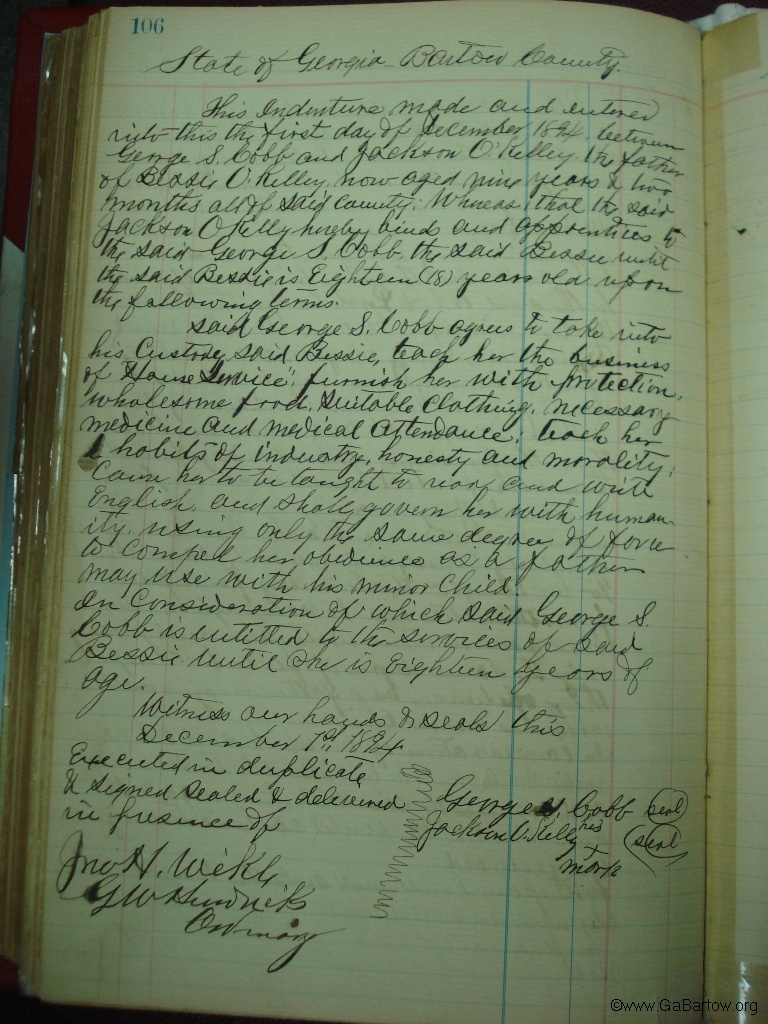 106
State of Georgia Bartow County.
This Indenture made and entered
into this the first day of December 1894, between
George S. Cobb and Jackson O'Kelley the father
of Bessie O'Kelley, now aged nine years & two
months all of said County: Whereas; that the said
Jackson O'Kelly hereby binds and apprentices to
the said George S. Cobb, the said Bessie until
the said Bessie is Eighteen (18) years old upon
the following terms.
Said George S. Cobb agrees to take into
his Custody said Bessie, teach her the business
of "House Service": furnish her with protection,
wholesome food, suitable clothing, necessary
medicine and medical attendance; teach her
habits of industry, honesty and morality;
Cause her to be taught to read and write
English, and shall govern her with human-
ity, using only the same degree of force
to compel her obedience as a father
may use with his minor child.
In Consideration of which said George S.
Cobb is entitled to the services of said
Bessie until she is Eighteen years of
age.
Witness our hands & seals this
December 1st, 1894
Executed in duplicate
& signed sealed & delivered
in presence of
George S. Cobb seal
Jackson O. Kelly his seal
+
mark
Jno. H. Wikle
G W Hendricks
Ordinary
©www.GaBartow.org